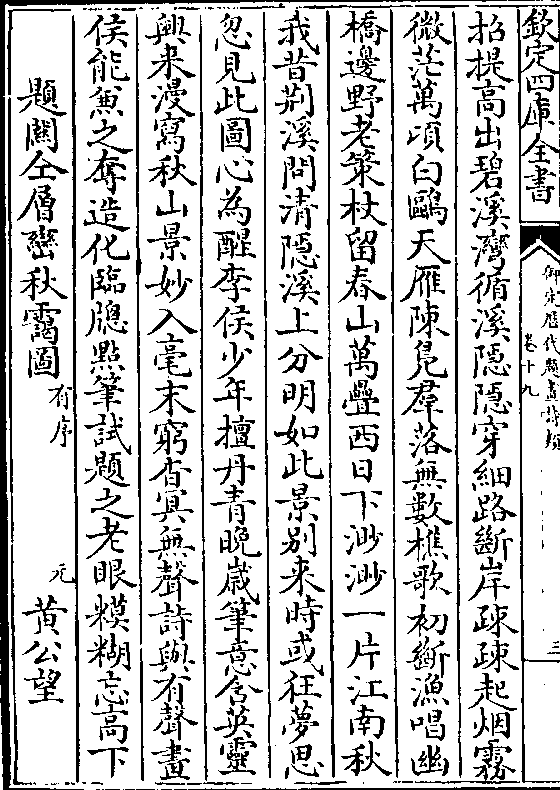 欽定四庫全書
御定歴代題畫詩類
卷十九
三
招提高出碧溪灣循溪隠隠穿細路斷岸疎疎起烟霧
微茫萬頃白鷗天雁陳鳬羣落無數樵歌初斷漁唱幽
橋邊野老策杖留春山萬疊西日下渺渺一片江南秋
我昔荆溪問清隠溪上分明如此景别来時或狂夢思
忽見此圖心為醒李侯少年擅丹青晩歳筆意含英靈
興来漫寫秋山景妙入毫末窮杳冥無聲詩與有聲畫
侯能兼之奪造化臨牕㸃筆試題之老眼糢糊忘高下
題關仝層巒秋靄圖有序 元 黄公望